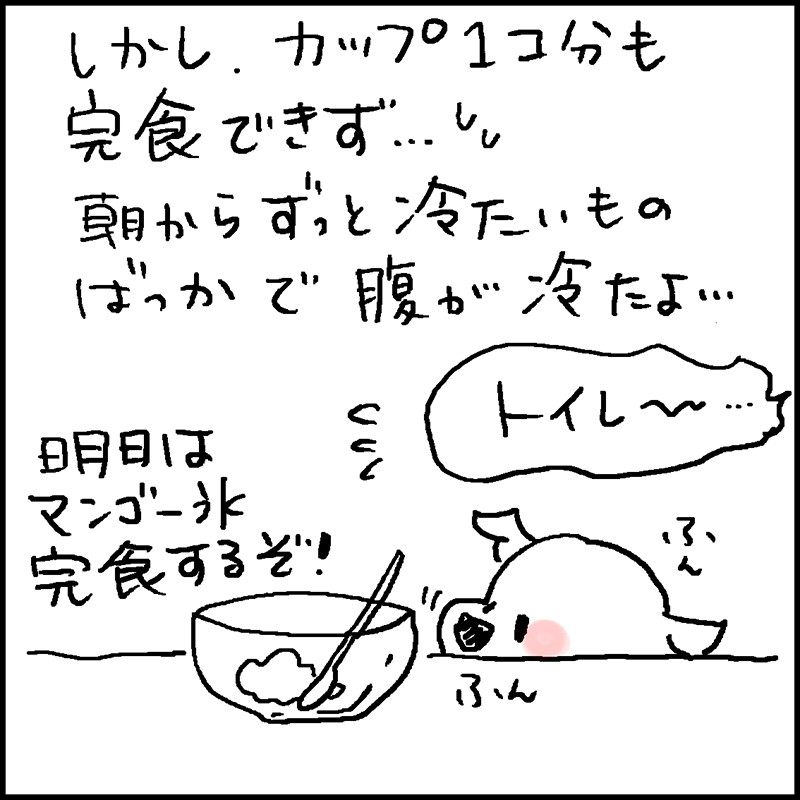 しかし、カップ1コ分も
完食できず…
朝からずっと冷たいもの
ばっかで腹が冷たよ…
トイレ〜…
明日は
マンゴー氷
完食するぞ!
ふん
ふん